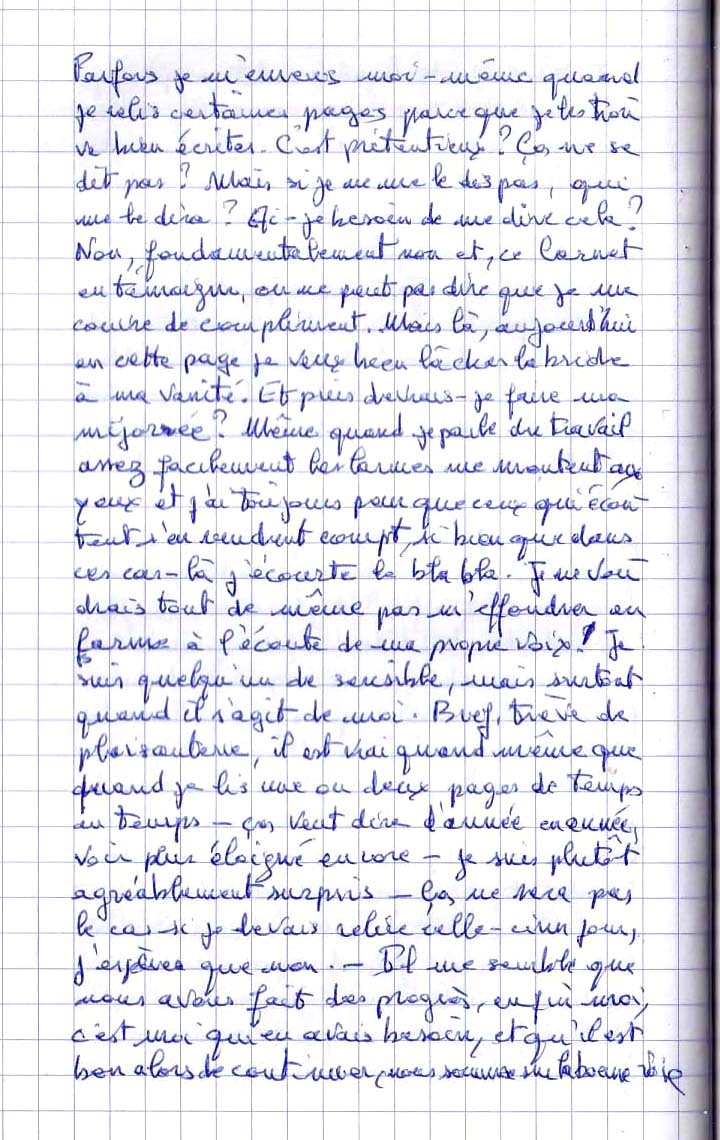 Parfois je m'énerve moi-même quand
je relis certaines pages parceque je les trou
ve bien écrites. C'est prétentieux? Ça ne se
dit pas? Mais si je ne me le dis pas, qui
me le dira? Ai-je besoin de me dire cela?
Non, fondamentalement non et, ce Carnet
en témoigne, on ne peut pas dire que je me
couvre de compliment. Mais là, aujourd'hui
en cette page je veux bien lâcher la bride
à ma vanité. Et puis devrais-je faire ma
mijorée? Même quand je parle du travail
assez facilement les larmes me montent aux
yeux et j'ai toujours peur que ceux qui écou
tent s'en rendent compt, si bien que dans
ces cas-là j'écourte le bla bla. Je ne vou
drais tout de même pas m'effondrer en
larme à l'écoute de ma propre voix! Je
suis quelqu'un de sensible, mais surtout
quand il s'agit de moi. Bref, trêve de
plaisanterie, il est vrai quand même que
quand je lis une ou deux pages de temps
en temps - ça veut dire d'année en année,
voir plus éloigné encore - je suis plutôt
agréablement surpris - Ça ne sera pas
le cas si je devais relire celle-ci un jour,
j'espère que non. - Il me semble que
nous avons fait des progrès, enfin moi,
c'est moi qui en avais besoin, et qu'il est
bon alors de continuer, nous sommes sur la bonne voie